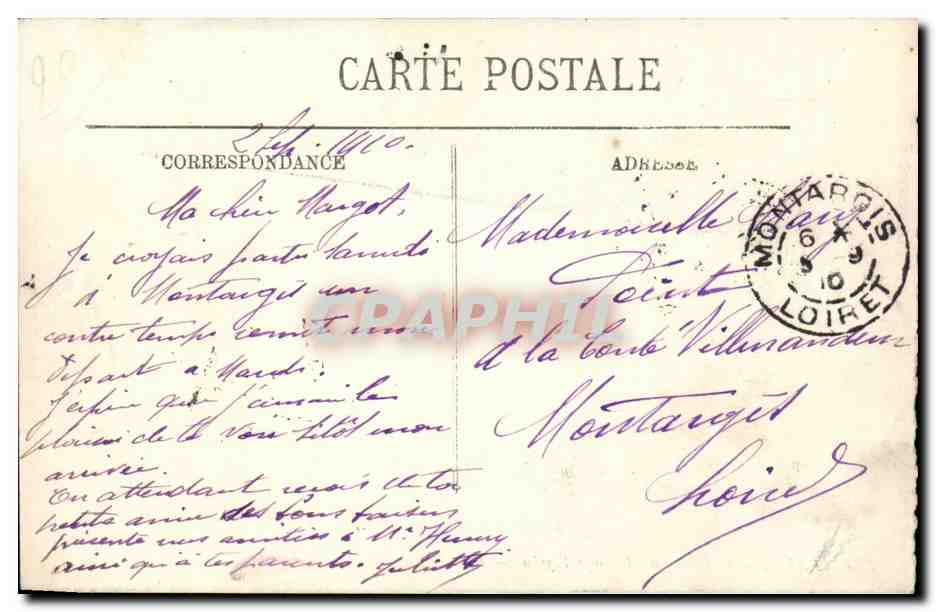 CARTE POSTALE
2 Sep. 1910.
CORRESPONDANCE
ADRESSE
Ma chère Margot,
Je croyais partir Samedi
à Montargis un
contre temps remit mon
départ à Mardi.
J'espère que j'aurai le
plaisir de te voir sitôt mon
arrivée.
En attendant reçois de ton
petite amie ses bons baisers
présente mes amitiés à Mr Henry
ainsi qu'à tes parents. Juliette
Mademoiselle
Point
à la Villemandeur
Montargis
Loiret
MONTARGIS
6 *
5 9
10
LOIRET
CPRAPHIL